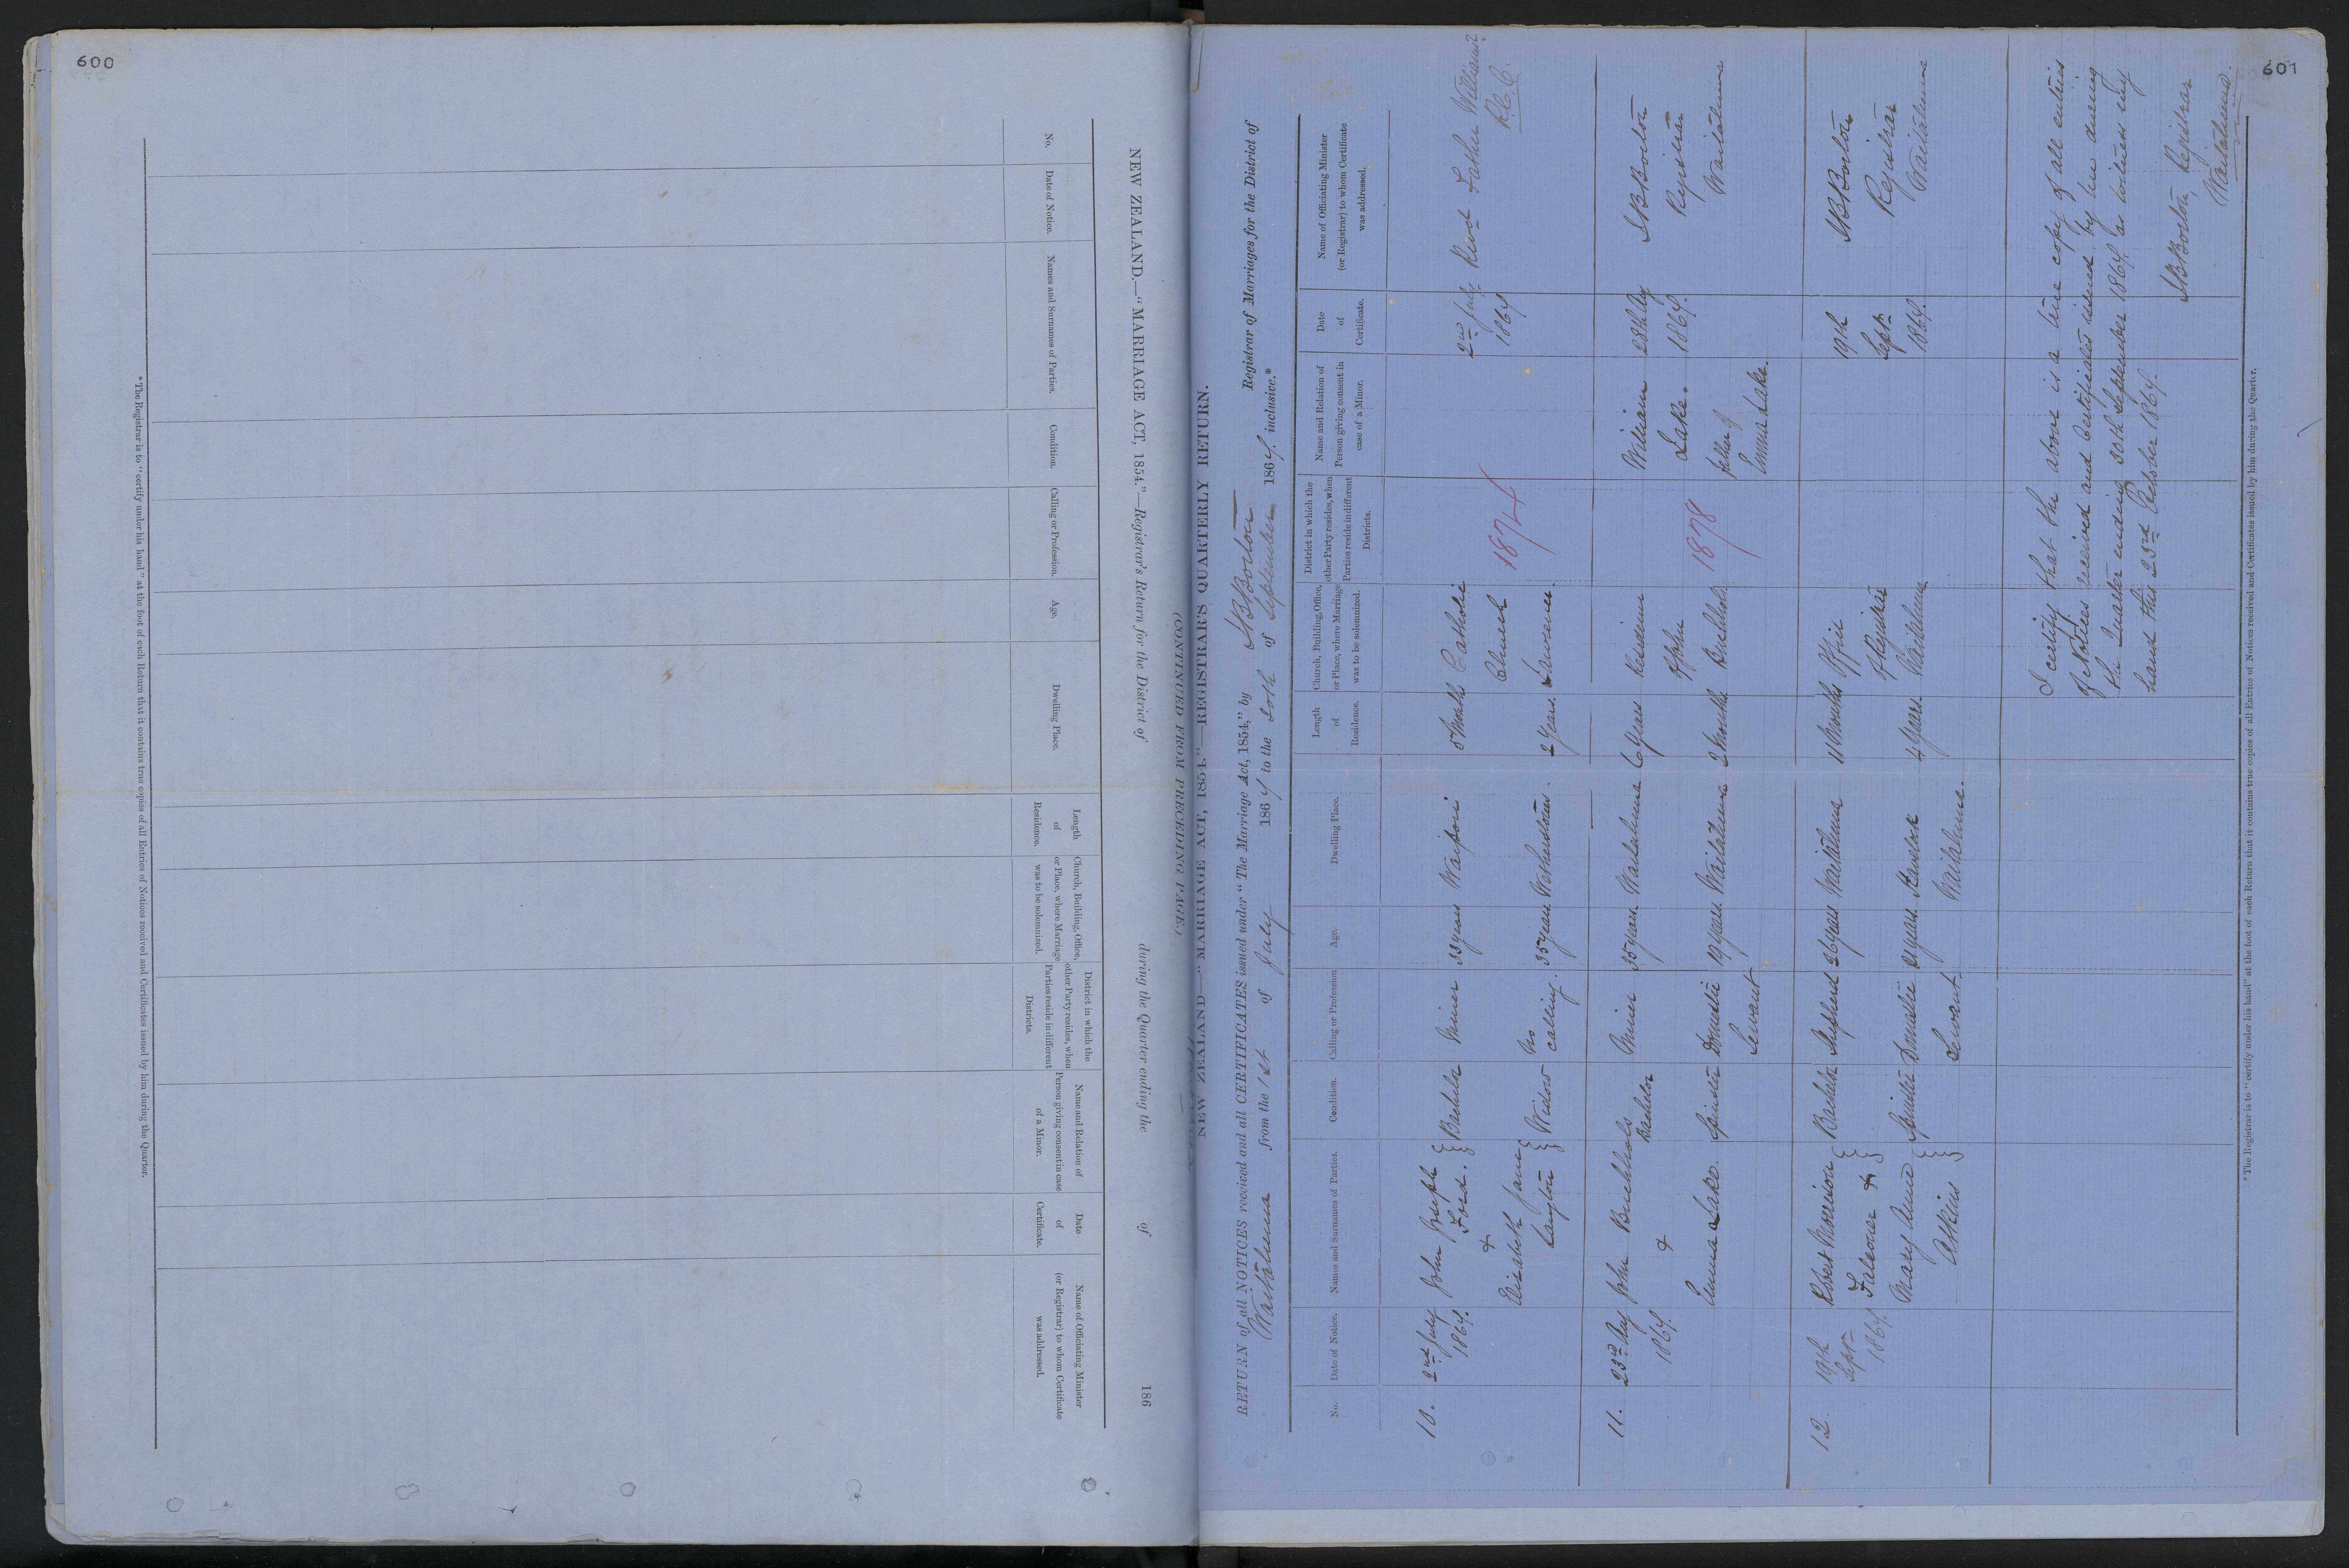 600
NEW ZEALAND.—"MARRIAGE ACT, 1854."—Registrar's Return for the District of during the Quarter ending the of 186
No.
Date of Notice.
Names and Surnames of Parties.
Condition.
Calling or Profession.
Age.
Dwelling Place.
Length
of
Residence.
Church, Building, Office,
or Place, where Marriage
was to be solemnized.
District in which the
other Party resides, when
Parties reside in different
Districts.
Name and Relation of
Person giving consent in case
of a Minor.
Date
of
Certificate.
Name of Officiating Minister
(or Registrar) to whom Certificate
was addressed.
*The Registrar is to "certify under his hand" at the foot of each Return that it contains true copies of all Entries of Notices received and Certificates issued by him during the Quarter.
601
(CONTINUED FROM PRECEDING PAGE.)
NEW ZEALAND—"MARRIAGE ACT, 1854."—REGISTRAR'S QUARTERLY RETURN.
RETURN of all NOTICES received and all CERTIFICATES issued under "The Marriage Act, 1854," by Borton Registrar of Marriages for the District of
Waitahuna from the 1st of July 1864 to the 30th of September 1864. inclusive.*
No.
Date of Notice.
Names and Surnames of Parties.
Condition.
Calling or Profession
Age.
Dwelling Place.
Length
of
Residence.
Church, Building, Office,
or Place, where Marriage
was to be solemnized.
District in which the
other Party resides, when
Parties reside in different
Districts.
Name and Relation of
Person giving consent in
case of a Minor.
Date
of
Certificate.
Name of Officiating Minister
(or Registrar) to whom Certificate
was addressed.
10. 2nd July John Joseph Bachelor Miner 33 years Waipori 5 Months Catholic 2nd July Revd Father Williams?
1864. Ford. Church 1874 1864 R.C.C.
&
Elizabeth Jane Widow No
Langton calling. 35 years Wetherstons. 2 years. Lawrence.
11. 23rd Aug John Buchhols Bachelor Miner 35 years Waitahuna 6 years Residence William 28th Aug Borton
1864. & of John Lake. 1864. Registrar
Emma Lake. Spinster Domestic 19 years Waitahuna 2 Months Buchhols 1878 father of Waitahuna
Servant Emma Lake.
12. 19th Robert Morrison Bachelor Shepherd 26 years Waitahuna 11 Months Office 19th Borton
Sept. Falconer & of Registrar Sept. Registrar
1864. Mary Anne Spinster Domestic 21 years Waitahuna. 4 years. Waitahuna 1864. Waitahuna
Atkins Servant
I certify that the above is a true copy of all entries
of Notices received and Certificates issued by me during
the Quarter ending 30th September 1864. as witness my
hand this 23rd October 1864.
Borton, Registrar
Waitahuna.
*The Registrar is to "certify under his hand" at the foot of each Return that it contains true copies of all Entries of Notices received and Certificates issued by him during the Quarter.